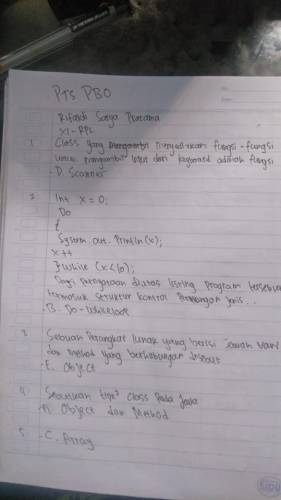 PTS PBO
Rifaldi Satya Pratama
XI-RPL
1. Class yang menyediakan fungsi-fungsi
untuk mengambil input dari keyboard adalah fungsi
- D. Scanner
2. Int X = 0;
Do
{
System.out.Println(x);
x++
}while (x<10);
Dari pernyataan diatas listing program tersebut
termasuk struktur kontrol Perulangan jenis..
- B. Do-Whileloop
3. Sebuah Perangkat lunak yang berisi
dan method yang berhubungan disebut
- E. Object
4. Sebutkan tipe² Class Pada Java
- A. Object dan Method
5. - C. Array